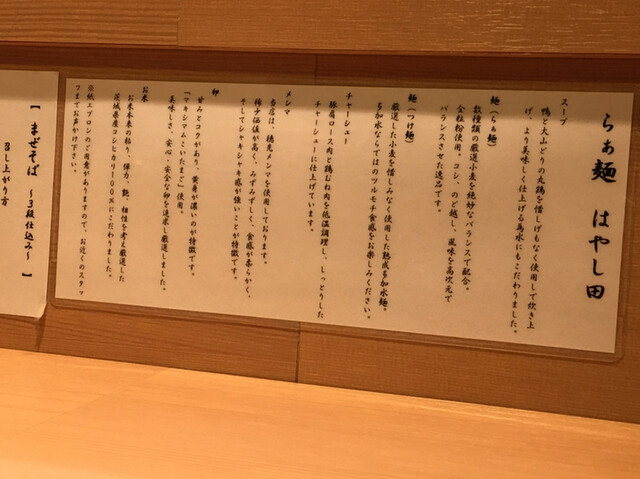 らぁ麺 はやし田
スープ
鴨と大山どりの丸鶏を惜しげもなく使用して炊き上
げ、より美味しく仕上げる為水にもこだわりました。
麺(らぁ麺)
数種類の厳選小麦を絶妙なバランスで配合。
全粒粉使用。コシ、のど越し、風味を高次元で
バランスさせた逸品です。
麺(つけ麺)
厳選した小麦を惜しみなく使用した熟成多加水麺。
多加水ならではのツルモチ食感をお楽しみください。
チャーシュー
豚肩ロース肉と鶏むね肉を低温調理し、しっとりした
チャーシューに仕上げています。
メンマ
当店は、穂先メンマを使用しております。
稀少価値が高く、みずみずしく、食感が柔らかく、
そしてシャキシャキ感が強いことが特徴です。
卵
甘みとコクがあり、黄身が濃いのが特徴です。
「マキシマムこいたまご」使用。
美味しさ、安心・安全な卵を追求し厳選しました。
お米
お米本来の粘り、弾力、艶、相性を考え厳選した
茨城県産コシヒカリ100%にこだわりました。
※紙エプロンのご用意がありますので、お近くのスタッ
フまでお声かけ下さい。
【 まぜそば ~3段仕込み~ 】
召し上がり方